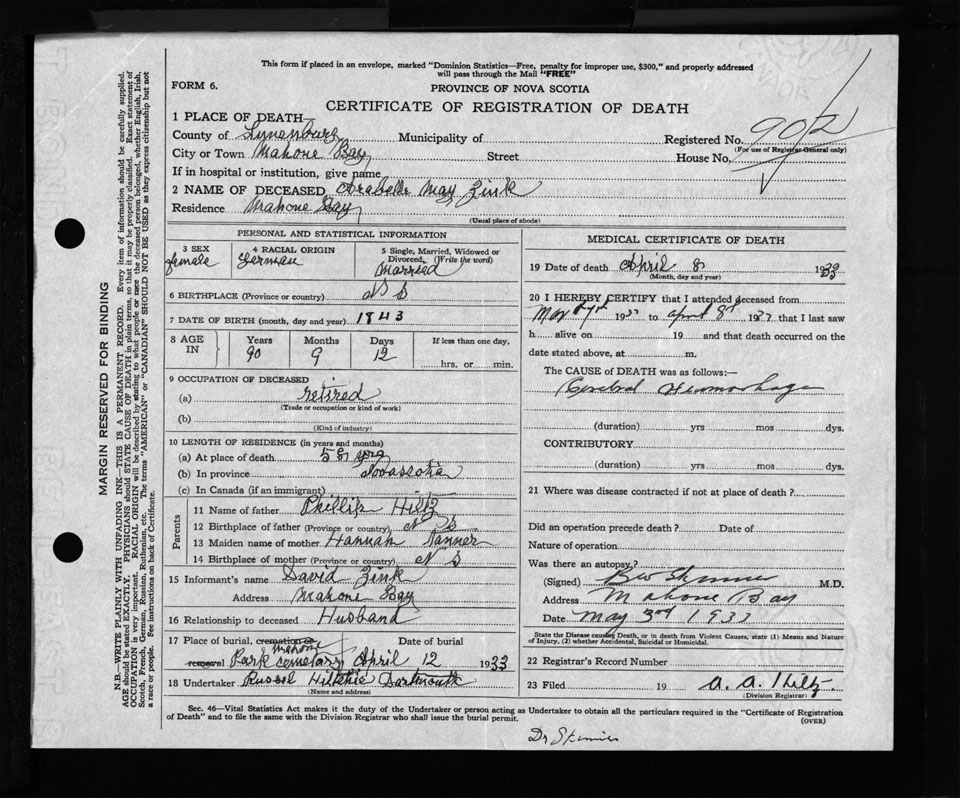 This form if placed in an envelope, marked "Dominion Statistics—Free, penalty for improper use, $300," and properly addressed
will pass through the Mail "FREE"
FORM 6.
PROVINCE OF NOVA SCOTIA
CERTIFICATE OF REGISTRATION OF DEATH
1 PLACE OF DEATH
County of Lunenburg Municipality of Registered No. 902
(For use of Registrar General only)
City or Town Mahone Bay Street House No.
If in hospital or institution, give name
2 NAME OF DECEASED Arabella May Zink
Residence Mahone Bay
(Usual place of abode)
PERSONAL AND STATISTICAL INFORMATION
3 SEX 4 RACIAL ORIGIN 5 Single, Married, Widowed or
Divorced, (Write the word)
female German Married
6 BIRTHPLACE (Province or country) N S
7 DATE OF BIRTH (month, day and year) 1843
8 AGE IN Years Months Days If less than one day,
90 9 12 hrs. or min.
9 OCCUPATION OF DECEASED
(a) retired
(Trade or occupation or kind of work)
(b)
(Kind of industry)
10 LENGTH OF RESIDENCE (in years and months)
(a) At place of death yrs
(b) In province Novascotia
(c) In Canada (if an immigrant)
Parents
11 Name of father Phillip Hiltz
12 Birthplace of father (Province or country) N S
13 Maiden name of mother Hannah Tanner
14 Birthplace of mother (Province or country) N S
15 Informant's name David Zink
Address Mahone Bay
16 Relationship to deceased Husband
17 Place of burial, cremation or Date of burial
Mahone
removal Park cemetary April 12 1933
18 Undertaker Russel Dartmouth
(Name and address)
MEDICAL CERTIFICATE OF DEATH
19 Date of death April 8 1933
(Month, day and year)
20 I HEREBY CERTIFY that I attended deceased from
to April 8th 1933 that I last saw
h alive on 19 and that death occurred on the
date stated above, at m.
The CAUSE of DEATH was as follows:—
Cerebral Hemorrhage
(duration) yrs mos dys.
CONTRIBUTORY
(duration) yrs mos dys.
21 Where was disease contracted if not at place of death?
Did an operation precede death? Date of
Nature of operation
Was there an autopsy?
(Signed) Skinner M.D.
Address Mahone Bay
Date May 3rd 1933
State the Disease causing Death, or in death from Violent Causes, state (1) Means and Nature
of Injury, (2) whether Accidental, Suicidal or Homicidal.
22 Registrar's Record Number
23 Filed 19 A. A. Hiltz
(Division Registrar)
Sec. 46—Vital Statistics Act makes it the duty of the Undertaker or person acting as Undertaker to obtain all the particulars required in the "Certificate of Registration
of Death" and to file the same with the Division Registrar who shall issue the burial permit. (OVER)
Dr Skinner
MARGIN RESERVED FOR BINDING
N.B.—WRITE PLAINLY WITH UNFADING INK—THIS IS A PERMANENT RECORD. Every item of information should be carefully supplied.
AGE should be stated EXACTLY. PHYSICIANS should STATE CAUSE OF DEATH in plain terms, so that it may be properly classified. Exact statement of
OCCUPATION is very important. RACIAL ORIGIN will be described by stating to what people or race the deceased person belonged, whether English, Irish,
Scotch, French, German, Russian, Ruthenian, etc. The terms "AMERICAN" or "CANADIAN" SHOULD NOT BE USED as they express citizenship but not
a race or people. See instructions on back of Certificate.